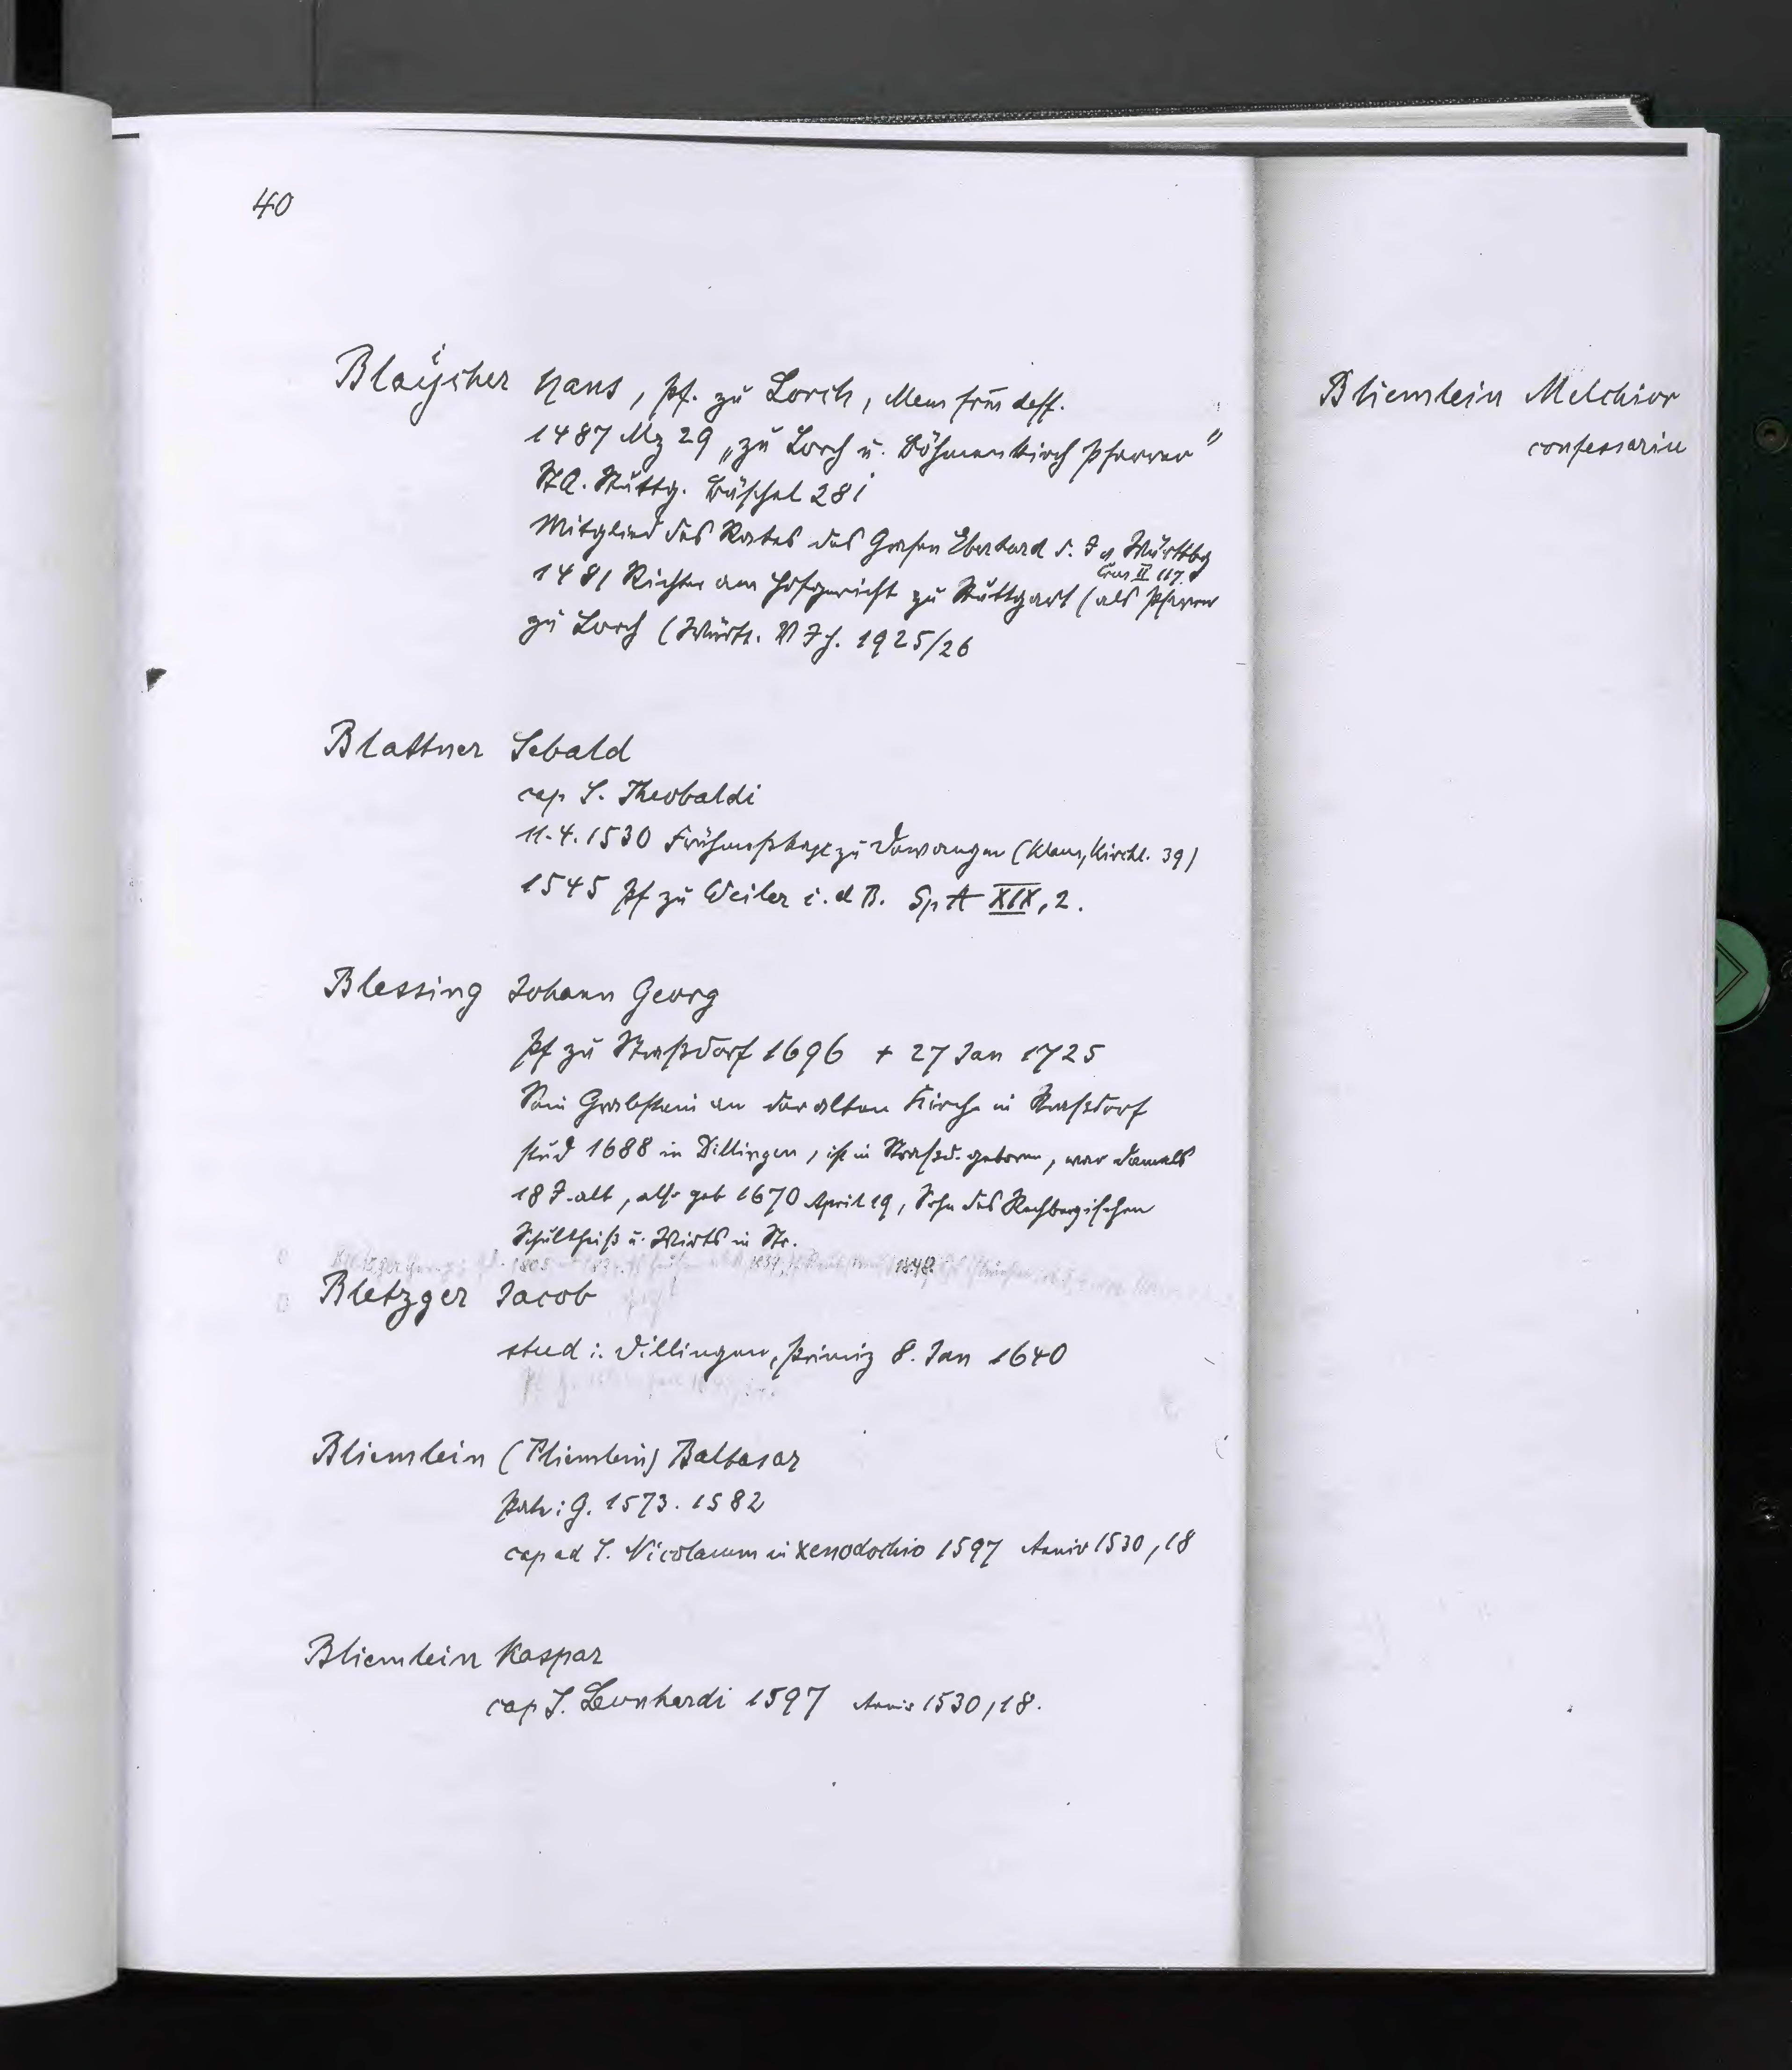 40
Blaÿcher Hans, Pf. zu Lorch, Mem frm̄ deff.
1487 Mz 29 „zu Lorch u. Böhmenkirch Pfarrer"
StA. Stuttg. Büschel 281
Mitglied des Rates des Grafen Eberhard d. J v Württbg
1481 Richter am Hofgericht zu Stuttgart (als Pfarrer
II 117.
zu Lorch (Württ. V J H. 1925/26
Blattner Sebald
cap S. Theobaldi
11.4.1530 zu Dewangen (Klaus, Kirchl. 39)
1545 Pf zu Weiler i. d B. Sp A XIX, 2.
Blessing Johann Georg
Pf zu Straßdorf 1696 + 27 Jan 1725
Sein Grabstein an der alten Kirche in Straßdorf
stud 1688 in Dillingen, ist in Straßd. geboren, war damals
18 J. alt, also geb 1670 April 19, Sohn des Rechbergischen
Schultheiß u. Wirts in Str.
1805 1839 1848
Bletzger Jacob
stud i. Dillingen, Primiz 8. Jan 1640
Bliemlein (Pliemlein) Baltasar
Patr: G. 1573. 1582
cap ad S. Nicolaum in xenodochio 1597 Anniv 1530, 18
Bliemlein Kaspar
cap S. Leonhardi 1597 Anniv 1530, 18.
Bliemlein Melchior
confessariu